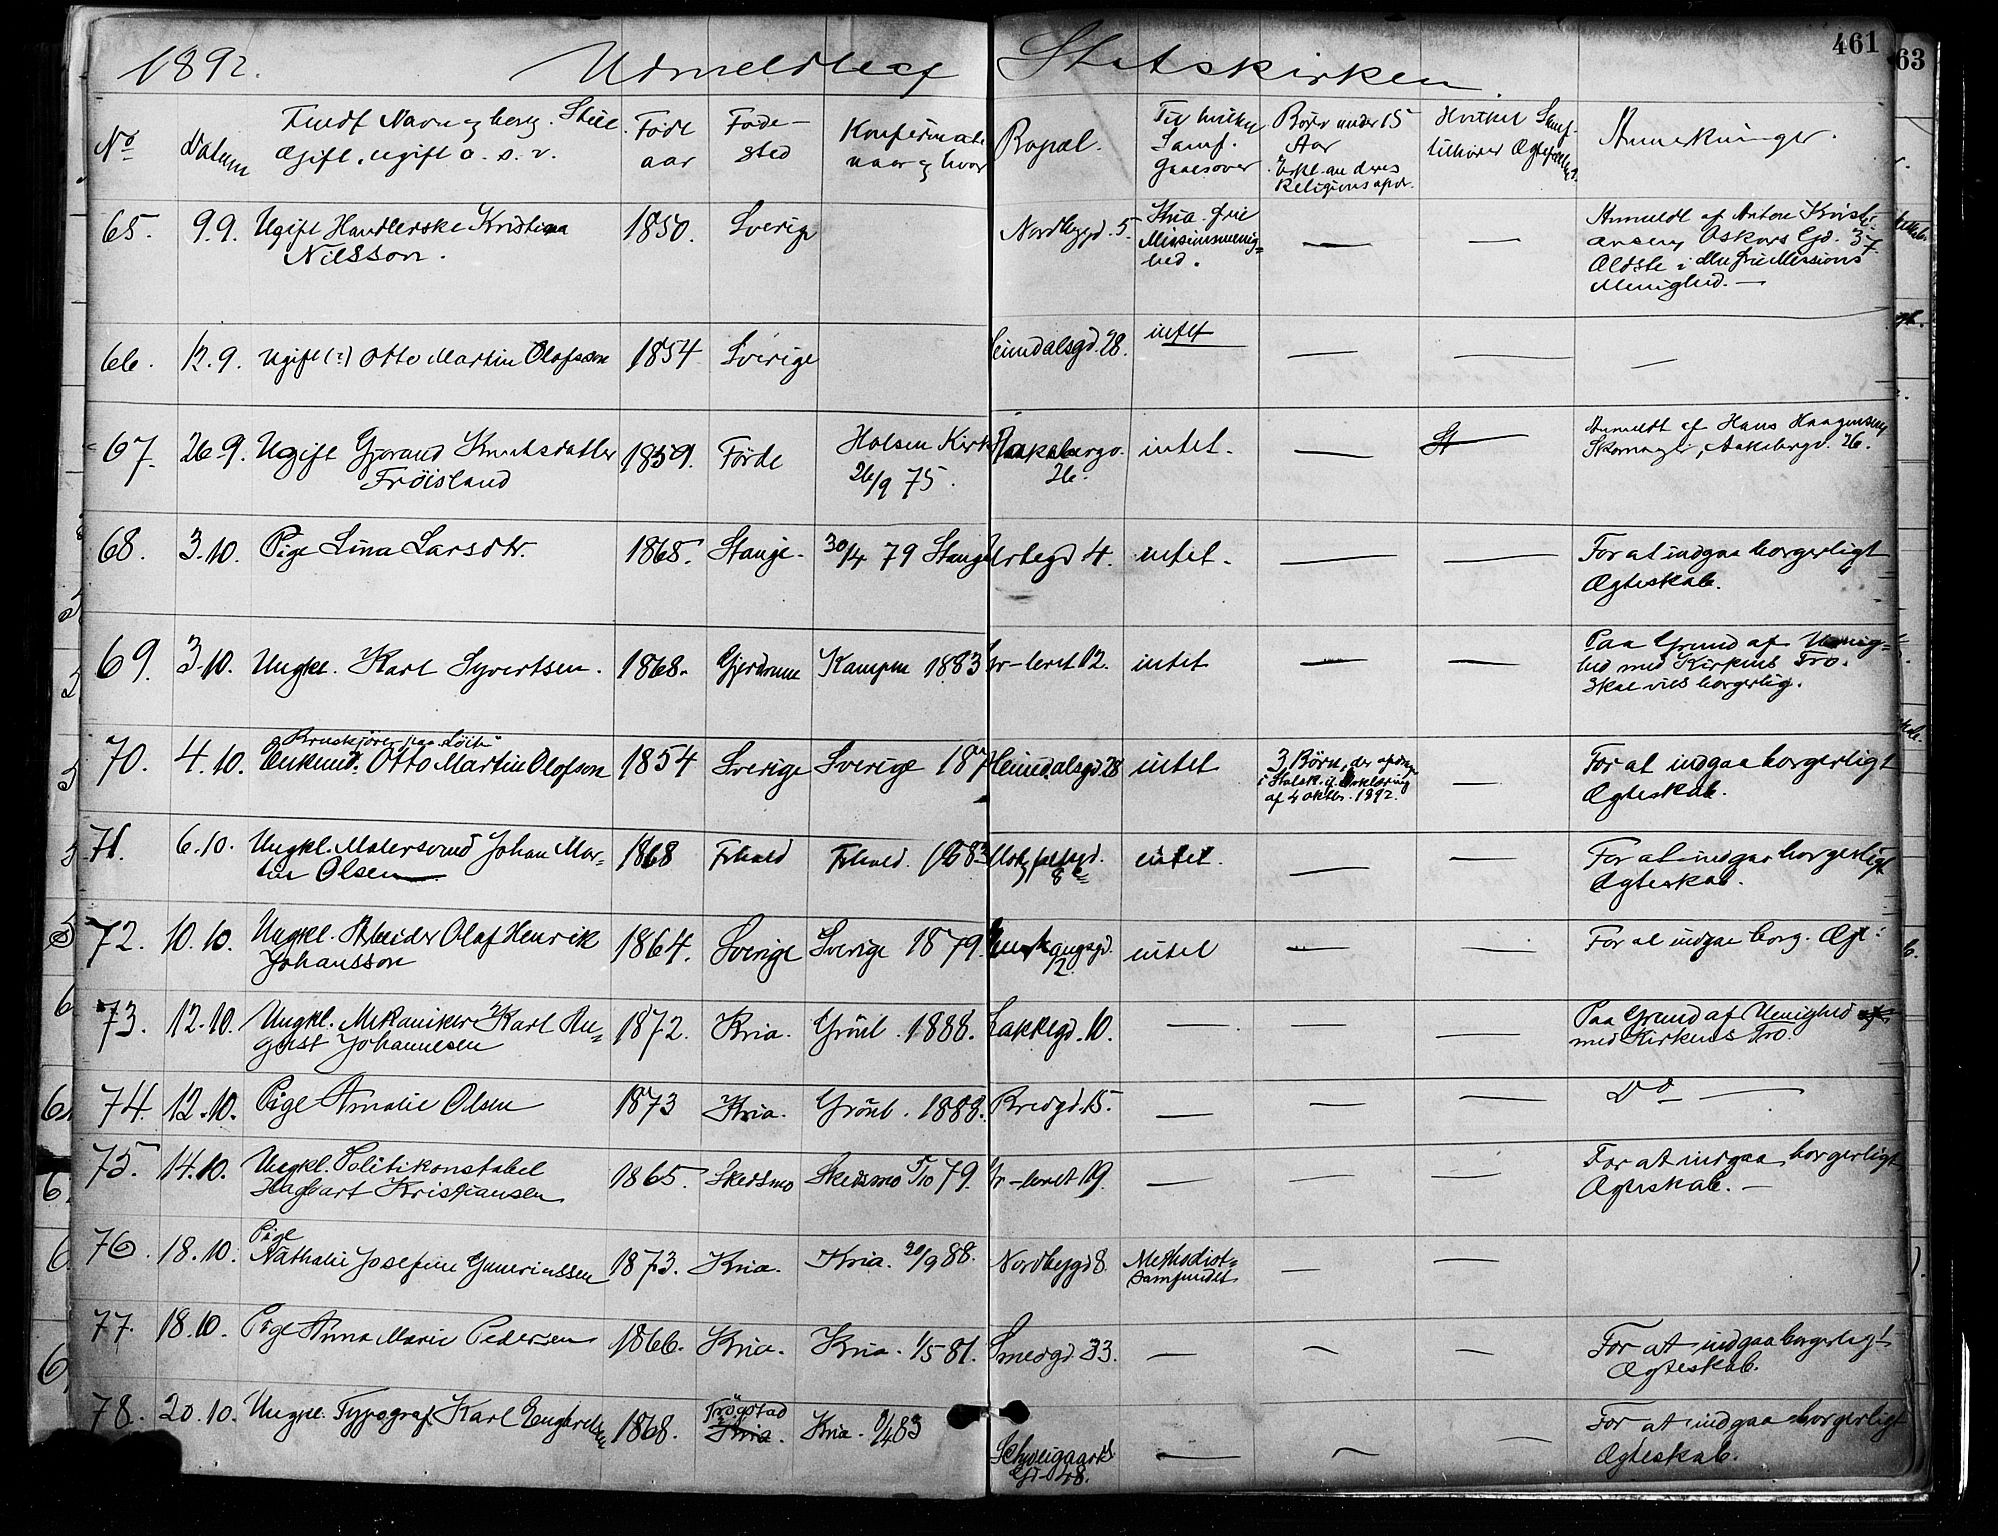 461
63
1892. Udmeldte af Statskirken
No Datum Fuldt Navn og borg. Still. Føde Føde- Konfirmati Bopæl. Til hvilket Børn under 15 Hvilket Samf. Anmerkninger.
Gift, ugift o. s. v. aar sted naar og hvor Samf. Aar tilhører Ægtef
gaaes over Erkl. om deres
Religionsopdr.
65. 9.9. Ugift Handlerske Kristina 1850. Sverige Nordbygd. 5. Kria. frie — — Anmeldt af Anton Kristi-
Nilsson. Missionsmenig= ansen, Oskars Gd. 37.
hed. Ældste i den frie Missions
Menighed. —
66. 12.9. Ugift (?) Otto Martin Olafsson 1854 Sverige Heimdalsgd. 28. intet — — —
67. 26.9. Ugift Gjørand Knudsdatter 1859. Førde Holsen Kirk Aakebergv. intet. — St Anmeldt af Hans Haagensen,
Frøisland 26/9 75. 26. Skomager, Aakebergv. 26.
68. 3.10. Pige Lina Larsdtr. 1865. Stange. 30/4 79 Stange Urtegd 4. intet. — — For at indgaa borgerligt
Ægteskab.
69. 3.10. Ungkl. Karl Syvertsen. 1868. Gjerdrum Kampen 1883 Gr-leret 12. intet — — Paa Grund af Uenig=
hed med Kirkens Tro.
Skal vies borgerlig.
Bruskjører paa "Løiten"
70. 4.10. Enkemd. Otto Martin Olofson 1854 Sverige Sverige 187 Heimdalsgd. 28 intet 3 Børn, der opdrages — For at indgaa borgerligt
i Statsk. if. Erklæring Ægteskab.
af 4 oktbr. 1892.
71. 6.10. Ungkl. Malersvend Johan Mar- 1868 Frhald Frhald. 1883 Motzfeldtsgd. intet. — — For at indgaa borgerligt
tin Olsen 8 Ægteskab.
72. 10.10. Ungkl. Arbeider Olaf Henrik 1864. Sverige Sverige 1879. intet — — For at indgaa borg. Ægt:
Johansson 12.
73. 12.10. Ungkl. Mekaniker Karl Au= 1872. Kria. Grønl. 1888. Lakkegd. 10. — — — Paa Grund af Uenighed af
gust Johannesen med Kirkens Tro.
74. 12.10. Pige Amalie Olsen 1873 Kria. Grønl. 1888. Bredgd. 15. — — — Do —
75. 14.10. Ungkl. Politikonstabel 1865. Skedsmo Skedsmo 5/10 79. Gr-leret 19. — — — For at indgaa borgerligt
Hagbart Kristiansen Ægteskab. —
Pige
76. 18.10. Nathalie Josefine Gunerinssen 1873. Kria. Kria. 30/9 88. Nordbygd 8. Methodist= — —
samfundet
77. 18.10. Pige Anna Marie Pedersen 1866. Kria. Kria. 1/5 81. Smedgd. 33. — — — For at indgaa borgerligt
Ægteskab.
Trøgstad
78. 20.10. Ungkl. Typograf Karl Engebretsen 1868. Kria. Kria. 8/4 83 Schweigaards — — — For at indgaa borgerligt
Gd. 48. Ægteskab.